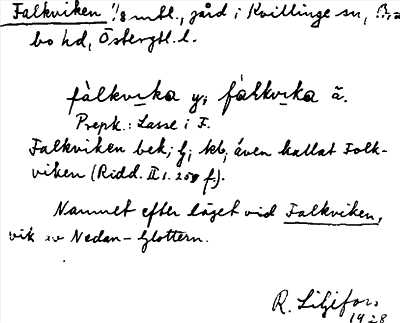 Falkviken 1/8 mtl., gård i Kvillinge sn,
bo hd, Östergtl. l.
fàlkvıka y; fàlkvıka ä.
Prepk.: Lasse i F.
Falkviken bek; G; kb, även kallat Folk-
viken (Ridd. II 1. f.).
Namnet efter läget vid Falkviken,
vik av Nedan-Glottern.
R. Liljefors
1928